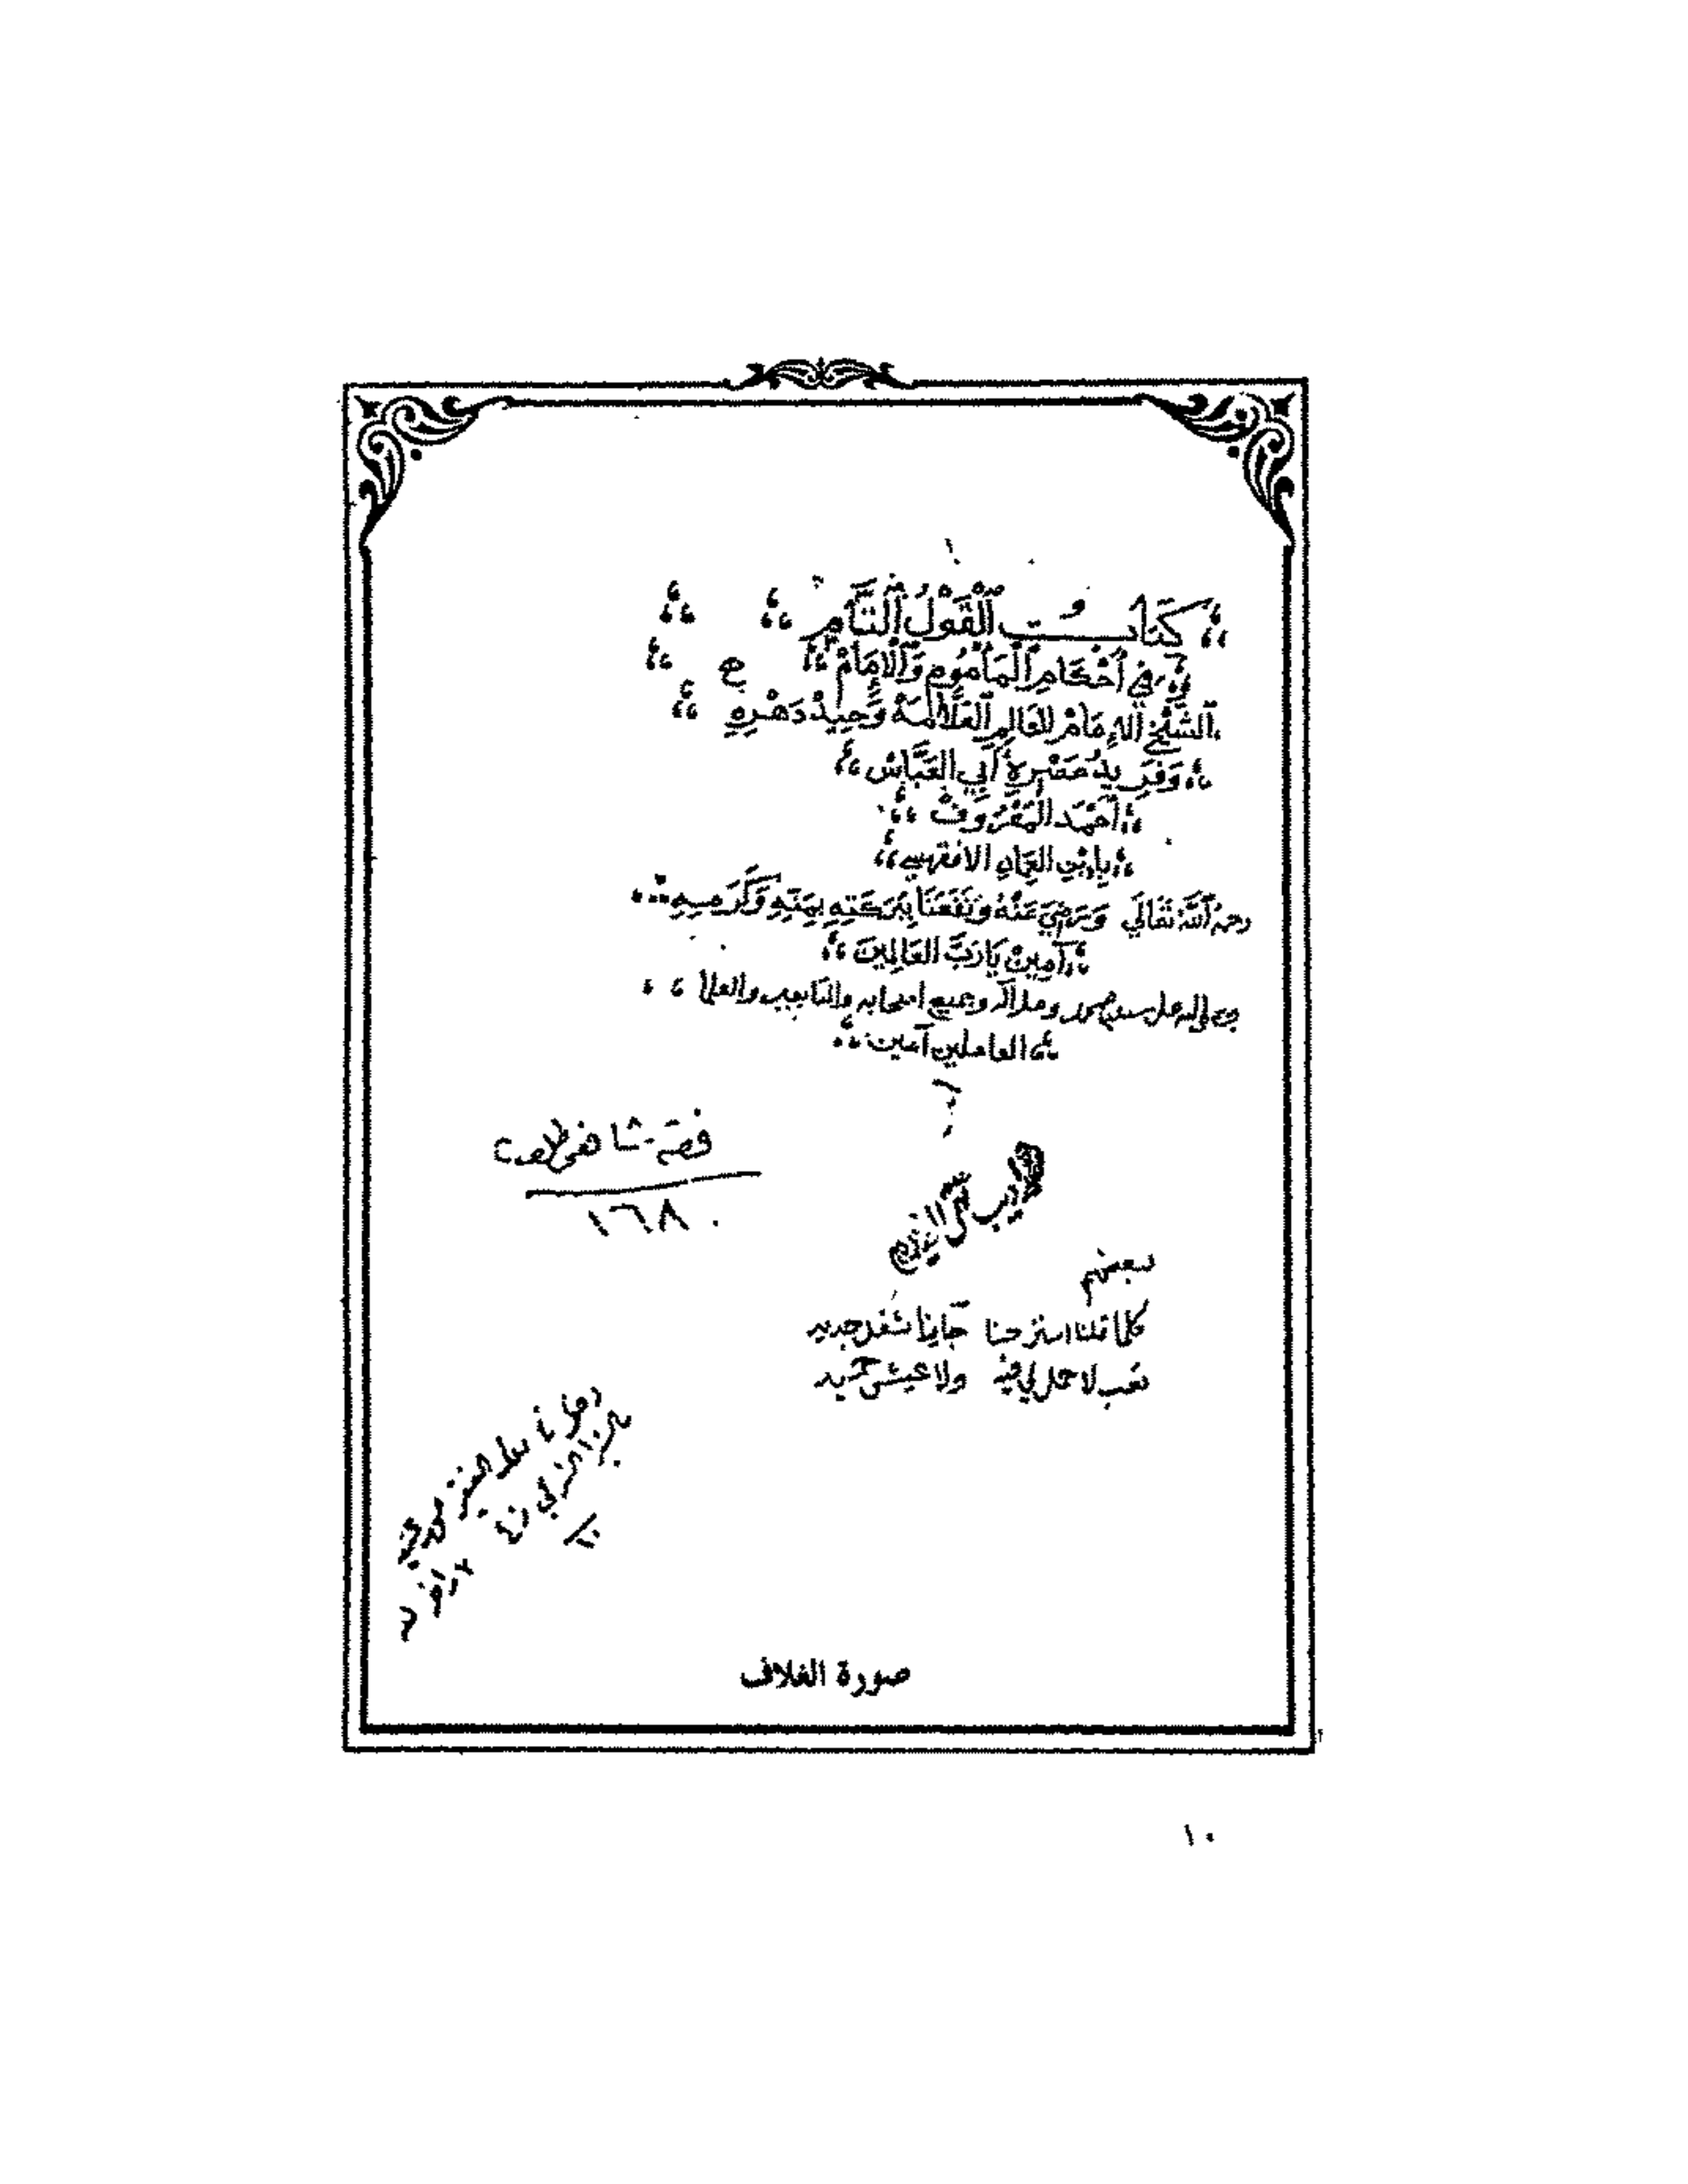 كتاب القول التام
في أحكام المأموم والإمام
الشيخ الإمام العالم العلامة وحيد دهره
وفريد عصره أبي العباس
أحمد المعروف
بابن العماد الأقفهسي
رحمه الله تعالي ورضي عنه ونفعنا ببركته بمنه وكرمه
آمين يا رب العالمين
وعلى آله وجميع أصحابه والتابعين والعلما
العاملين آمين
فقه شافعي طلعت
١٦٨
لبعضهم
كلما قلنا استرحنا جاءنا شغل جديد
تعب لا حمل لي فيه ولا عيش حميد
صورة الغلاف
١٠